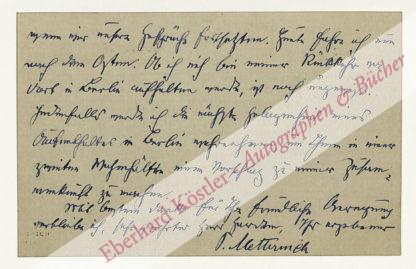 wenn wir unsere Gespräche fortsetzten. Heute fahre ich nun
nach dem Osten. Ob ich mich bei meiner Rückkehr
in Berlin aufhalten werde, ist noch ungewiß.
Jedenfalls werde ich die nächste Gelegenheit eines
Aufenthaltes in Berlin wahrnehmen, um Ihnen in einer
zweiten einen Vorschlag zu einer Zusam-
menkunft zu machen.
Mit bestem Dank für Ihre freundliche
verbleibe ich, sehr geehrter Herr Ihr ergebener
P. Metternich
Eberhard Köstler - Autographen & Bücher